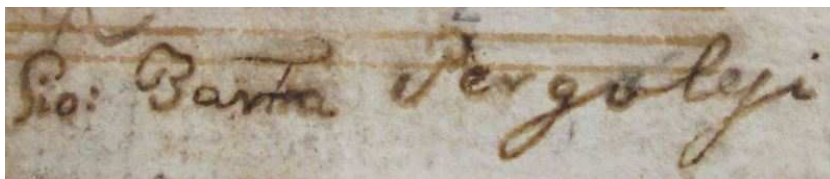 Gio: Batta Pergolesi